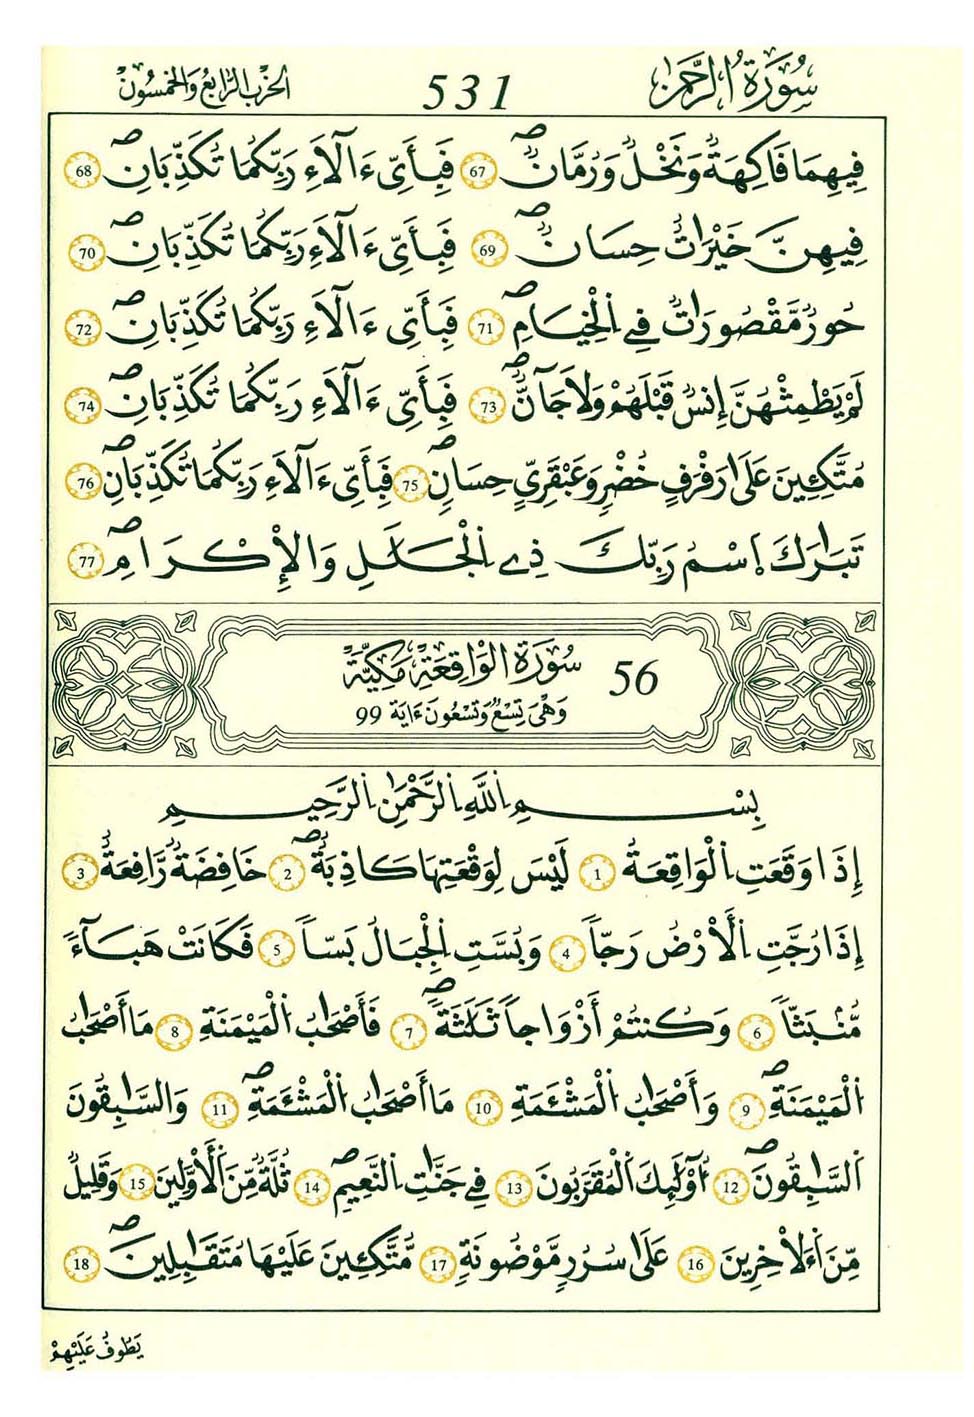 سُورَةُ الرَّحْمَٰن 531 الحِزْبُ الرَّابِعُ وَالخَمْسُونَ
فِيهِمَا فَاكِهَةٌ وَنَخْلٌ وَرُمَّانٌ ۖ 67 فَبِأَيِّ ءَالَآءِ رَبِّكُمَا تُكَذِّبَانِ ۖ 68
فِيهِنَّ خَيْرَٰتٌ حِسَانٌ ۖ 69 فَبِأَيِّ ءَالَآءِ رَبِّكُمَا تُكَذِّبَانِ ۖ 70
حُورٌ مَّقْصُورَٰتٌ فِے اِ۬لْخِيَامِ ۖ 71 فَبِأَيِّ ءَالَآءِ رَبِّكُمَا تُكَذِّبَانِ ۖ 72
لَمْ يَطْمِثْهُنَّ إِنسٌ قَبْلَهُمْ وَلَا جَآنٌّ ۖ 73 فَبِأَيِّ ءَالَآءِ رَبِّكُمَا تُكَذِّبَانِ ۖ 74
مُتَّكِـِٔينَ عَلَىٰ رَفْرَفٍ خُضْرٍ وَعَبْقَرِيٍّ حِسَانٍ ۖ 75 فَبِأَيِّ ءَالَآءِ رَبِّكُمَا تُكَذِّبَانِ ۖ 76
تَبَٰرَكَ اَ۪سْمُ رَبِّكَ ذِے اِ۬لْجَلَٰلِ وَالْإِكْرَامِ ۖ 77
56 سُورَةُ الْوَاقِعَةِ مَكِّيَّةٌ
وَهْيَ تِسْعٌ وَتِسْعُونَ ءَايَة 99
بِسْمِ اِ۬للَّهِ اِ۬لرَّحْمَٰنِ اِ۬لرَّحِيمِ
إِذَا وَقَعَتِ اِ۬لْوَاقِعَةُ 1 لَيْسَ لِوَقْعَتِهَا كَاذِبَةٌ ۖ 2 خَافِضَةٌ رَّافِعَةٌ 3
إِذَا رُجَّتِ اِ۬لْأَرْضُ رَجّاً 4 وَبُسَّتِ اِ۬لْجِبَالُ بَسّاً 5 فَكَانَتْ هَبَآءً
مُّنۢبَثّاً 6 وَكُنتُمْ أَزْوَاجاً ثَلَٰثَةً ۖ 7 فَأَصْحَٰبُ اُ۬لْمَيْمَنَةِ 8 مَا أَصْحَٰبُ
اُ۬لْمَيْمَنَةِ ۖ 9 وَأَصْحَٰبُ اُ۬لْمَشْـَٔمَةِ 10 مَا أَصْحَٰبُ اُ۬لْمَشْـَٔمَةِ ۖ 11 وَالسَّٰبِقُونَ
اَ۬لسَّٰبِقُونَ ۖ 12 أُوْلَٰٓئِكَ اَ۬لْمُقَرَّبُونَ 13 فِے جَنَّٰتِ اِ۬لنَّعِيمِ ۖ 14 ثُلَّةٌ مِّنَ اَ۬لْأَوَّلِينَ 15 وَقَلِيلٌ
مِّنَ اَ۬لْأٓخِرِينَ 16 عَلَىٰ سُرُرٍ مَّوْضُونَةٍ 17 مُّتَّكِـِٔينَ عَلَيْهَا مُتَقَٰبِلِينَ ۖ 18
يَطُوفُ عَلَيْهِمْ